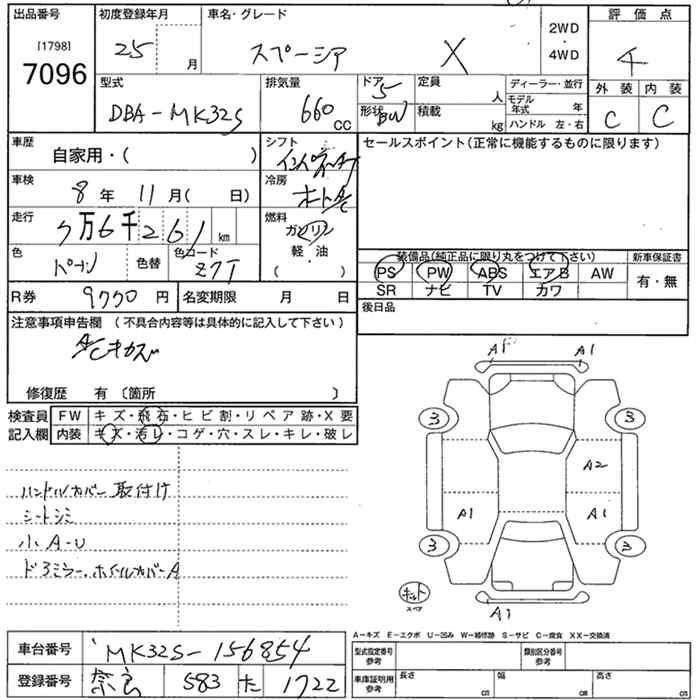 出品番号 初度登録年月 車名・グレード 評価点
[1798] 25 月 スペーシア X 2WD ・ 4WD 4
7096
型式 排気量 ドア 5 定員 人 ディーラー・並行 外装 内装
DBA-MK32S 660 CC 形状 BW 積載 kg モデル年式 年 C C
ハンドル 左・右
車歴 自家用・( ) シフト インパネAT セールスポイント(正常に機能するものに限ります)
車検 8 年 11 月( 日) 冷房 オートA/C
走行 7万6千261 km 燃料 ガソリン
軽・油
・
( )
色 パープル 色替 色コード ZJT 装備品(純正品に限り丸をつけて下さい) 新車保証書
PS PW ABS エアB AW 有・無
SR ナビ TV カワ
R券 9770 円 名変期限 月 日 後日品
注意事項申告欄 (不具合内容等は具体的に記入して下さい)
A/Cキカズ
修復歴 有 〔箇所 〕
検査員 FW キズ・飛石・ヒビ割・リペア跡・X要
記入欄 内装 キズ・汚レ・コゲ・穴・スレ・キレ・破レ
A1 A1
3 3
A2
A1 A1
3 3
ハンドルカバー取付け
シートシミ
小A-U
ドアミラー、ホイールカバーA
キット
スペア
A1
A-キズ E-エクボ U-凹み W-補修跡 S-サビ C-腐食 XX-交換済
車台番号 MK32S-156854 型式指定番号 参考 類別区分番号 参考
登録番号 奈良 583 た 1722 車庫証明用 参考 長さ cm 幅 cm 高さ cm